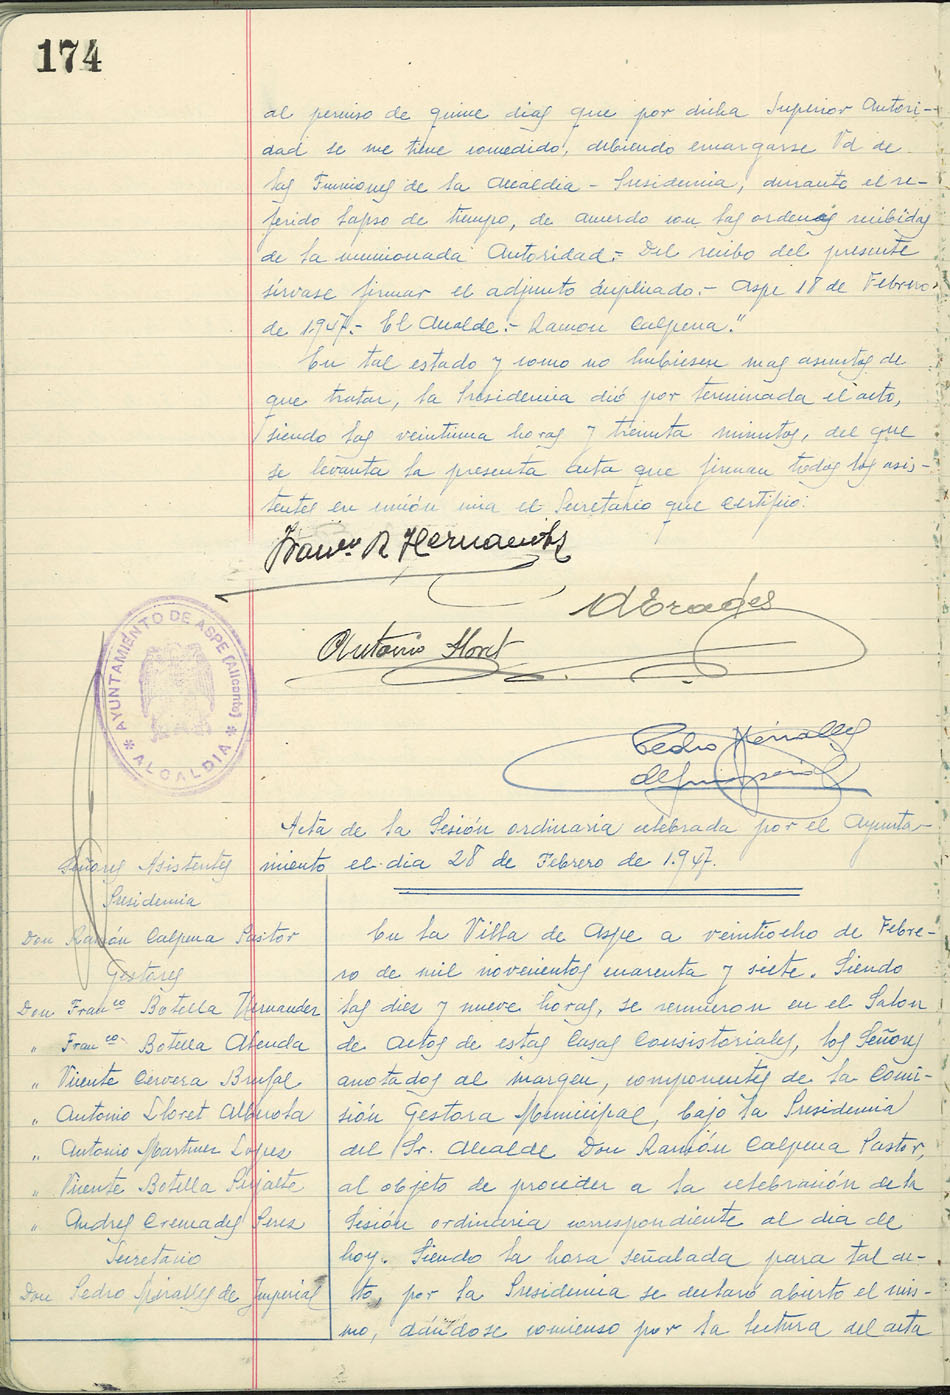 174
al permiso de quince dias que por dicha Superior Autori-
dad se me tiene concedido, debiendo encargarse Vd de
las Funciones de la Alcaldia-Presidencia, durante el re-
ferido lapso de tiempo, de acuerdo con las ordenes recibidas
de la mencionada Autoridad.- Del recibo del presente
sirvase firmar el adjunto duplicado.- Aspe 18 de Febrero
de 1.947.- El Alcalde.- Ramon Calpena."
En tal estado y como no hubiesen mas asuntos de
que tratar, la Presidencia dió por terminada el acto,
siendo las veintiuna horas y treinta minutos, del que
se levanta la presenta acta que firman todos los asis-
tentes en unión mia el Secretario que certifico:
Franco R Hernandez
Antonio Lloret
AYUNTAMIENTO DE ASPE (Alicante)
* ALCALDIA *
Pedro Miralles
de Imperial
Acta de la Sesión ordinaria celebrada por el Ayunta-
miento el dia 28 de Febrero de 1.947.
Señores Asistentes
Presidencia
Don Ramón Calpena Pastor
Gestores
Don Franco Botella Hernander
" Franco Botella Abenda
" Vicente Cervera Brufal
" Antonio Lloret Alberola
" Antonio Martinez Lopez
" Vicente Botella
" Andres Cremades Perez
Secretario
Don Pedro Miralles de Imperial
En la Villa de Aspe a veintiocho de Febre-
ro de mil novecientos cuarenta y siete. Siendo
las diez y nueve horas, se reunieron en el Salon
de Actos de estas Casas Consistoriales, los Señores
anotados al margen, componentes de la Comi-
sión Gestora Municipal, bajo la Presidencia
del Sr. Alcalde Don Ramón Calpena Pastor,
al objeto de proceder a la celebración de la
Sesión ordinaria correspondiente al dia de
hoy. Siendo la hora señalada para tal ac-
to, por la Presidencia se declaró abierto el mis-
mo, dándose comienso por la lectura del acta